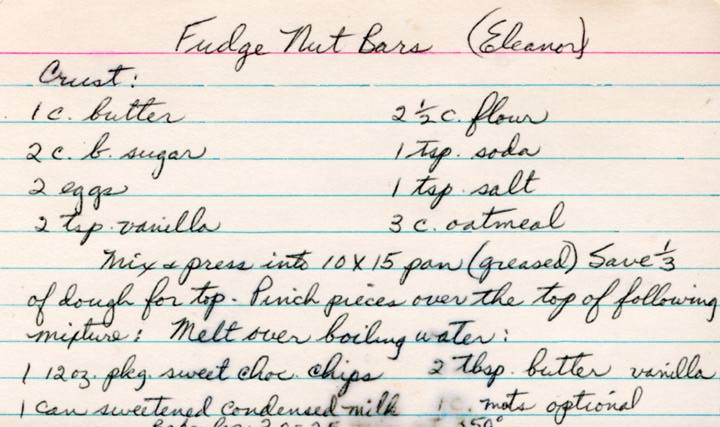 Fudge Nut Bars (Eleanor)
Crust:
1 c. butter 2 ½ c. flour
2 c. b. sugar 1 tsp. soda
2 eggs 1 tsp. salt
2 tsp. vanilla 3 c. oatmeal
Mix & press into 10 X 15 pan (greased) Save ⅓
of dough for top. Pinch pieces over the top of following
mixture: Melt over boiling water:
1 12 oz. pkg. sweet choc. chips 2 Tbsp. butter vanilla
1 can sweetened condensed milk 1 c. nuts optional